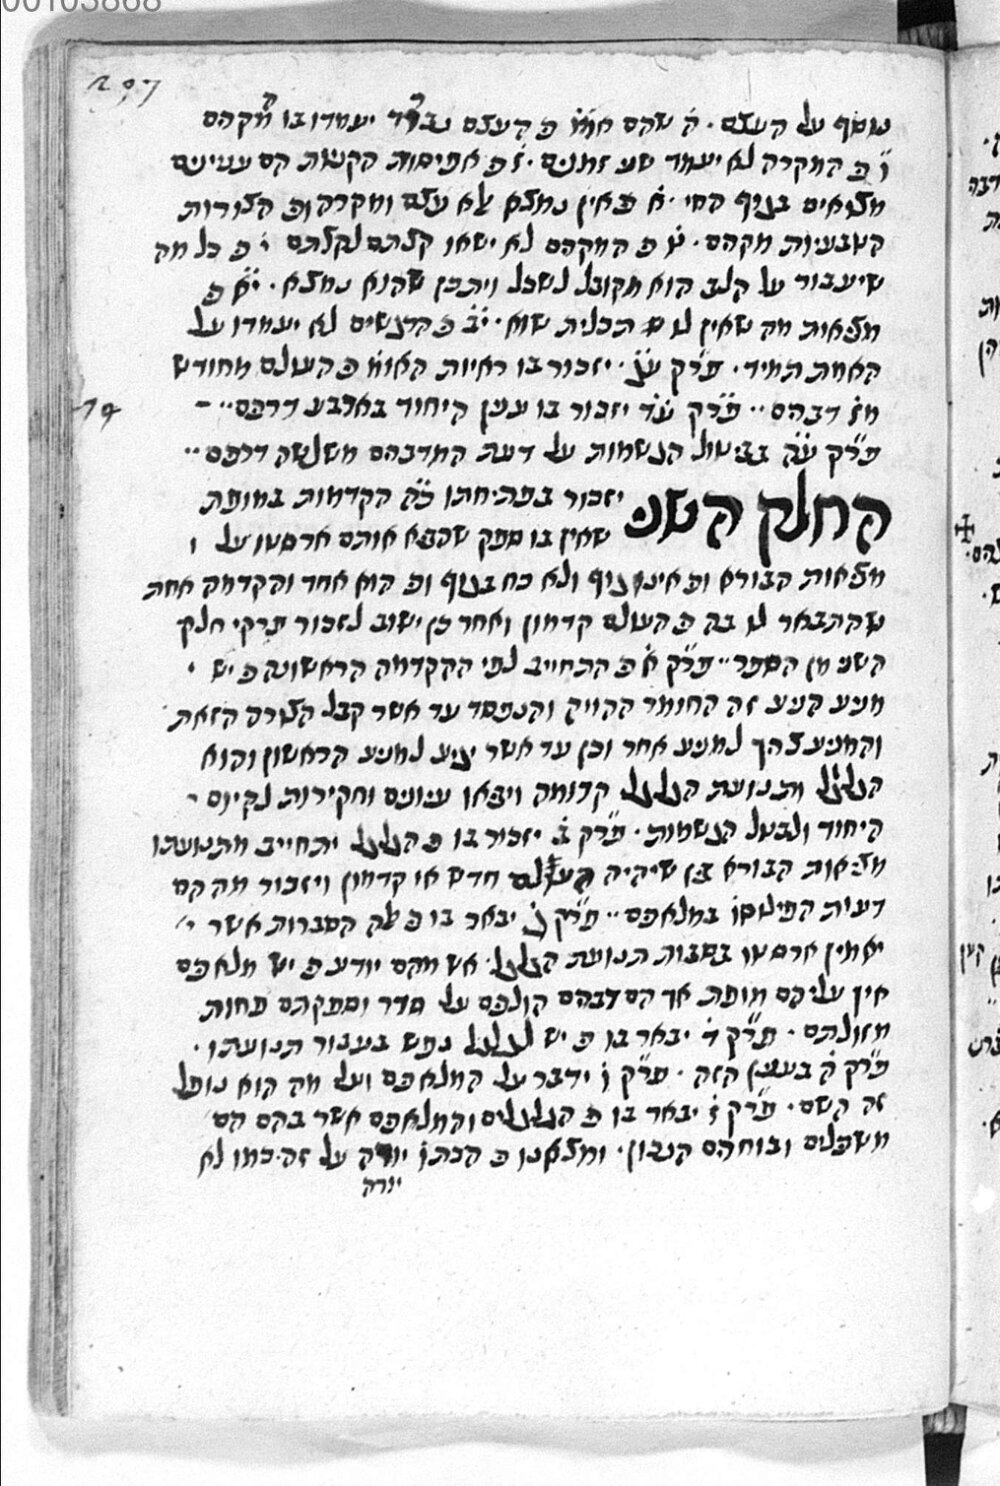 00103868
207
נוסף על העצם . ה׳ שהם אומ׳ כי העצם נבדל יעמדו בו מקרים
ו׳ כי המקרה לא יעמד שני זמנים . ז׳ כי אפיסות הקנינים הם ענינים
מצואים בגוף החי . ח׳ כי אין נמצא אלא עצם ומקרה וכי הצורות
הטבעיות מקרים . ט׳ כי המקרים לא ישאו קצתם לקצתם י׳ כי כל מה
שיעבור על הלב הוא מקובל לשכל ויתכן שהוא נמצא . י״א כי
מציאות מה שאין לו תכלית שוא . י״ב כי הרגשים לא יעמדו על
האמת תמיד . פרק ע״ד . יזכור בו ראיות האומ׳ כי העולם מחודש
מז׳ דברים .. פרק ע״ה יזכור בו ענין היחוד בארבע דרכים ..
74
פרק ע״ו בביטול הגשמות על דעת המדברים משלשה דרכים ..
החלק השני
יזכור בפתיחתו כ״ה הקדמות במופת
שאין בו ספק שהביא אותם ארסטו על
מציאות הבורא וכי אינו גוף ולא כח בגוף וכי הוא אחד והקדמה אחת
שהתבאר לו בה כי העולם קדמון ואחר כן ישוב לזכור פרקי חלק
השני מן הספר .. פרק א׳ כי התחייב לפי ההקדמה הראשונה כי יש
מניע הניע זה החומר ההויה והנפסד עד אשר קבל הצורה הזאת
והמניע צריך למניע אחר וכן עד אשר יגיע למניע הראשון והוא
הגלגל ותנועת הגלגל קדומה ויביאו ענינים וחקירות לקיום
היחוד ולבטל הגשמות . פרק ב׳ יזכור בו כי הגלגל יתחייב מתנועתו
מציאות הבורא בין שיהיה העולם חדש או קדמון ויזכור מה הם
דעות הפילוסו׳ במלאכים .. פרק ג׳ יבאר בו כי אלה הסברות אשר
יאמין ארסטו בסבות תנועת הגלגל . אשר מהם יודע כי יש מלאכים
אין עליהם מופת אך הם דברים הולכים על סדר וספקתם פחות
מזולתם . פרק ד׳ יבאר בו כי יש לגלגל נפש בעבור תנועתו .
פרק ה׳ בענין הזה . פרק ו׳ ידבר על המלאכים ועל מה הוא נופל
זה השם . פרק ז׳ יבאר בו כי הגלגלים והמלאכים אשר בהם הם
משכילים ובוחרים הנכון . ומצאנו כי הכתו׳ יורה על זה . כמו לא
יורה